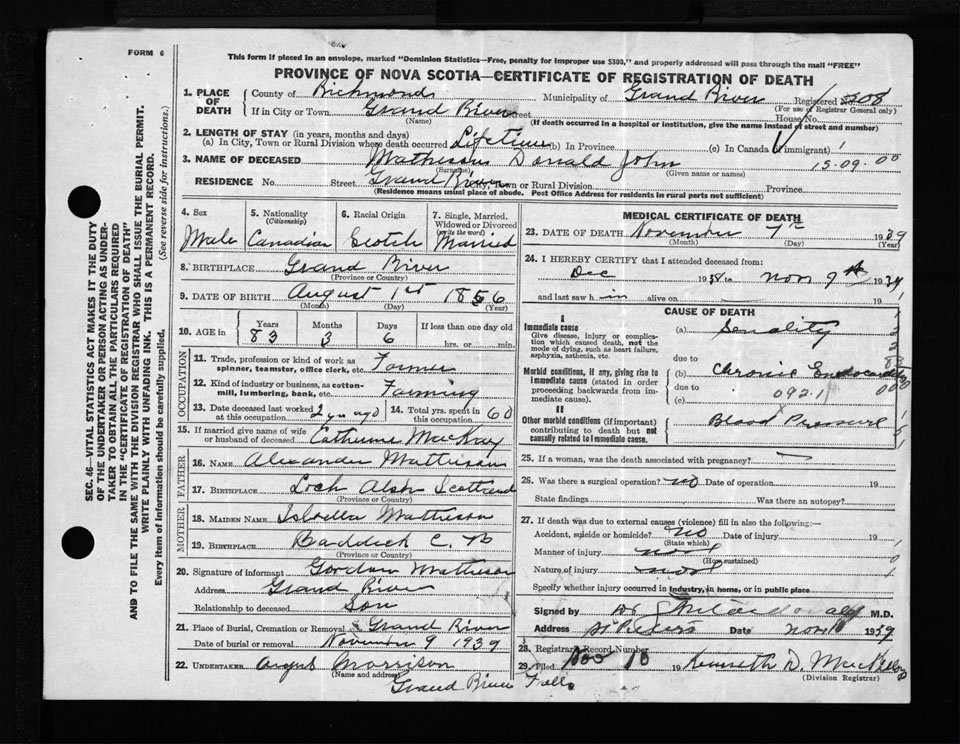 FORM 6
This form if placed in an envelope, marked "Dominion Statistics—Free, penalty for improper use $300," and properly addressed will pass through the mail "FREE"
PROVINCE OF NOVA SCOTIA—CERTIFICATE OF REGISTRATION OF DEATH
SEC. 46—VITAL STATISTICS ACT MAKES IT THE DUTY
OF THE UNDERTAKER OR PERSON ACTING AS UNDER-
TAKER TO OBTAIN ALL THE PARTICULARS REQUIRED
IN THE "CERTIFICATE OF REGISTRATION OF DEATH"
AND TO FILE THE SAME WITH THE DIVISION REGISTRAR WHO SHALL ISSUE THE BURIAL PERMIT.
WRITE PLAINLY WITH UNFADING INK. THIS IS A PERMANENT RECORD.
Every item of information should be carefully supplied. (See reverse side for instructions.)
1. PLACE OF DEATH County of Richmond Municipality of Grand River Registered No. 308
If in City or Town Grand River Street House No.
(Name) (For use of Registrar General only)
(If death occurred in a hospital or institution, give the name instead of street and number)
2. LENGTH OF STAY (in years, months and days)
(a) In City, Town or Rural Division where death occurred Lifetime (b) In Province (c) In Canada (if immigrant)
3. NAME OF DECEASED Matheson Donald John 15.09.00
(Surname) (Given name or names)
RESIDENCE No. Street Grand River City, Town or Rural Division Province
(Residence means usual place of abode. Post Office Address for residents in rural parts not sufficient)
4. Sex Male
5. Nationality (Citizenship) Canadian
6. Racial Origin Scotch
7. Single, Married, Widowed or Divorced (write the word) Married
8. BIRTHPLACE Grand River
(Province or Country)
9. DATE OF BIRTH August 1st 1856
(Month) (Day) (Year)
10. AGE in Years 83 Months 3 Days 6 If less than one day old hrs. or min.
OCCUPATION
11. Trade, profession or kind of work as spinner, teamster, office clerk, etc. Farmer
12. Kind of industry or business, as cotton-mill, lumbering, bank, etc. Farming
13. Date deceased last worked at this occupation 2 yr ago 14. Total yrs. spent in this occupation 60
15. If married give name of wife or husband of deceased Catherine MacKay
FATHER
16. NAME Alexander Matheson
17. BIRTHPLACE Loch Alsh Scotland
(Province or Country)
MOTHER
18. MAIDEN NAME Isbella Matheson
19. BIRTHPLACE Baddeck C. B
(Province or Country)
20. Signature of informant Gordon Matheson
Address Grand River
Relationship to deceased Son
21. Place of Burial, Cremation or Removal Grand River
Date of burial or removal November 9 1939
22. UNDERTAKER Angus Morrison
(Name and address)
Grand River Falls
MEDICAL CERTIFICATE OF DEATH
23. DATE OF DEATH November 7th 1939
(Month) (Day) (Year)
24. I HEREBY CERTIFY that I attended deceased from:
Dec 1938 to Nov 7th 1939
and last saw him alive on 19
CAUSE OF DEATH
I
Immediate cause
Give disease, injury or complication which caused death, not the mode of dying, such as heart failure, asphyxia, asthenia, etc.
(a) Senility
due to
Morbid conditions, if any, giving rise to immediate cause (stated in order proceeding backwards from immediate cause).
(b) Chronic Endocarditis
due to
(c) 092.1
II
Other morbid conditions (if important) contributing to death but not causally related to immediate cause.
Blood Pressure
25. If a woman, was the death associated with pregnancy?
26. Was there a surgical operation? no Date of operation 19
State findings Was there an autopsy?
27. If death was due to external causes (violence) fill in also the following:—
Accident, suicide or homicide? no Date of injury 19
(State which)
Manner of injury
(How sustained)
Nature of injury
Specify whether injury occurred in industry, in home, or in public place.
Signed by M.D.
Address St Peters Date Nov 1939
28. Registrar's Record Number
29. Filed Nov 10 19 Kenneth D.
(Division Registrar)